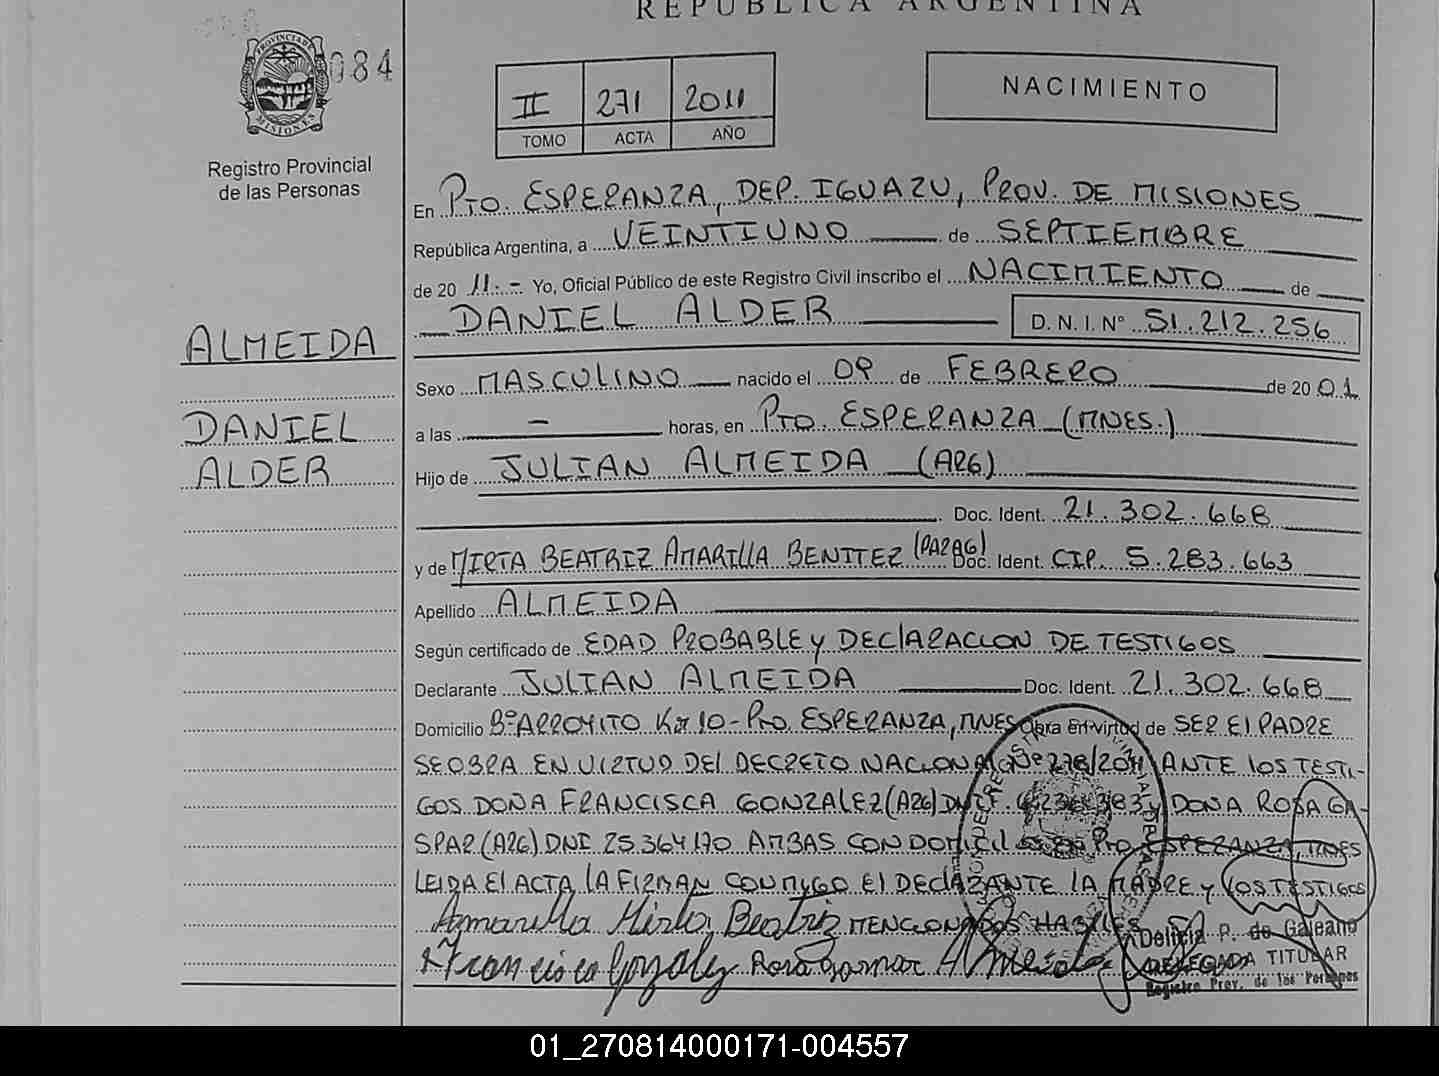 REPUBLICA ARGENTINA
PROVINCIA DE
MISIONES
084
Registro Provincial
de las Personas
II 271 2011
TOMO ACTA AÑO
NACIMIENTO
En PTO. ESPERANZA, DEP. IGUAZU, PROV. DE MISIONES
República Argentina, a VEINTIUNO de SEPTIEMBRE
de 20 11.- Yo, Oficial Público de este Registro Civil inscribo el NACIMIENTO de
DANIEL ALDER D. N. I. N° 51.212.256
ALMEIDA
Sexo MASCULINO nacido el 09 de FEBRERO de 20 01
DANIEL
ALDER
a las - horas, en PTO. ESPERANZA (MNES.)
Hijo de JULIAN ALMEIDA (ARG)
Doc. Ident. 21.302.668
y de MIRTA BEATRIZ AMARILLA BENITEZ (PARAG) Doc. Ident. CIP. 5.283.663
Apellido ALMEIDA
Según certificado de EDAD PROBABLE y DEClARACION DE TESTIGOS
Declarante JULIAN ALMEIDA Doc. Ident. 21.302.668
Domicilio B° ARROYITO Km 10 - Pto. ESPERANZA, MNES Obra en virtud de SER El PADRE
SE OBRA EN VIRTUD DEl DECRETO NACIONAl N° 278/2011 ANTE lOS TESTI-
GOS DOÑA FRANCISCA GONZALEZ (ARG) DNI 383 y DOÑA ROSA GA-
SPAR (ARG) DNI 25.364.170 AMBAS CON DOMICILIO EN Pto. ESPERANZA, MNES
LEIDA El ACTA lA FIRMAN CONMIGO El DECLARANTE LA MADRE y LOS TESTIGOS
Amarilla Mirta Beatriz MENCIONADOS HABILES
Francisca Gonzalez Rosa Gaspar Almeida
Delicia P. de Galeano
DELEGADA TITULAR
Registro Prov. de las Personas
01_270814000171-004557